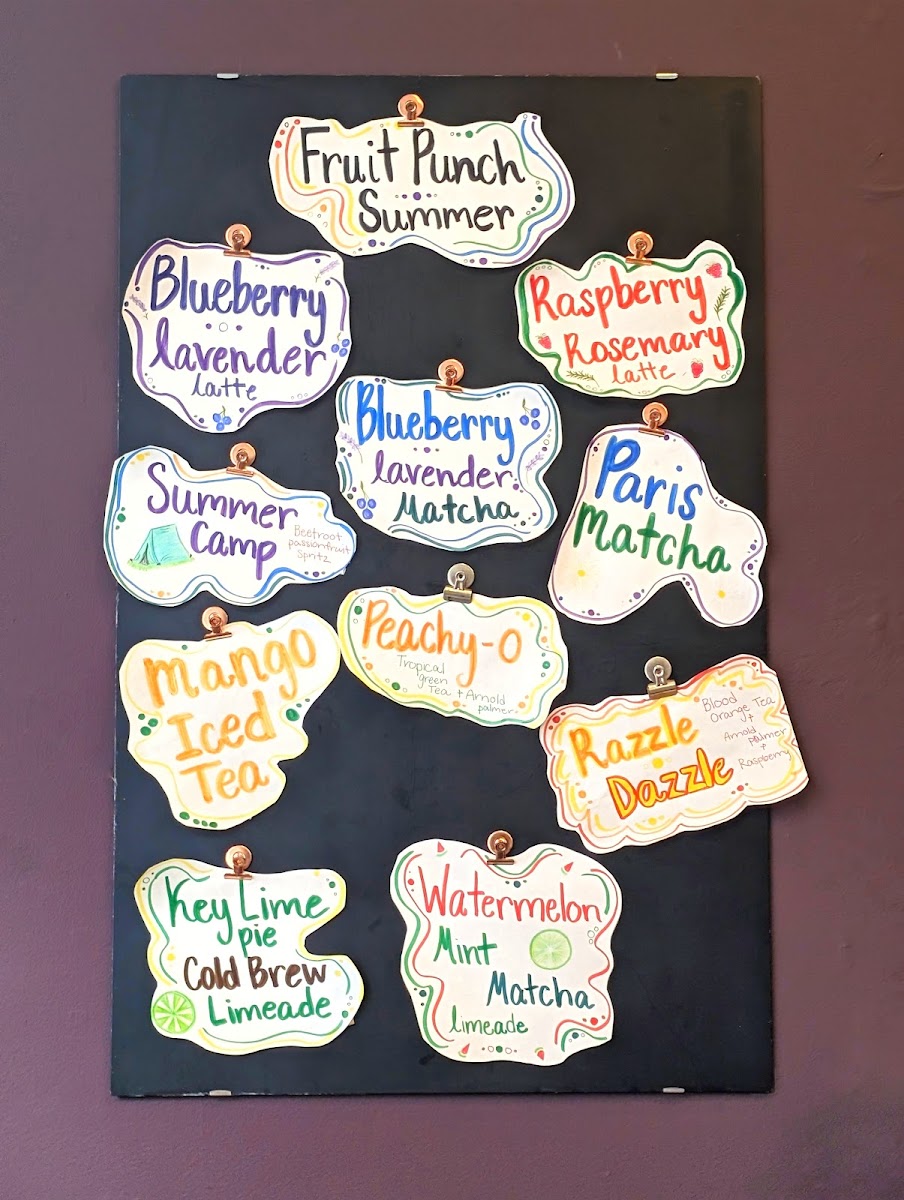 Fruit Punch
Summer
Blueberry
lavender
latte
Raspberry
Rosemary
latte
Blueberry
lavender
Matcha
Summer
Camp
Beetroot
passionfruit
Spritz
Paris
Matcha
Mango
Iced
Tea
Peachy-O
Tropical
green
Tea + Arnold
palmer
Razzle
Dazzle
Blood
Orange Tea
+
Arnold
palmer
+
Raspberry
Key Lime
pie
Cold Brew
Limeade
Watermelon
Mint
Matcha
limeade